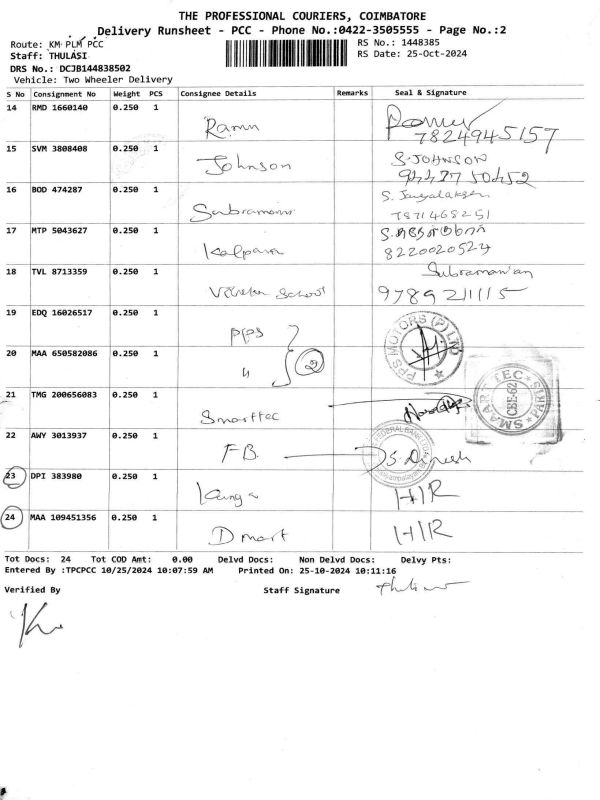 THE PROFESSIONAL COURIERS, COIMBATORE
Delivery Runsheet - PCC - Phone No.:0422-3505555 - Page No.:2
Route: KM PLM PCC
RS No.: 1448385
Staff: THULASI
RS Date: 25-Oct-2024
DRS No.: DCJB144838502
Vehicle: Two Wheeler Delivery
S No Consignment No Weight PCS Consignee Details Remarks Seal & Signature
14 RMD 1660140 0.250 1
7824945157
15 SVM 3808408 0.250 1 Johnson S. JOHNSON
16 BOD 474287 0.250 1
7871468251
17 MTP 5043627 0.250 1 Kalpana
8220020524
18 TVL 8713359 0.250 1 School Subramanian
9789211115
19 EDQ 16026517 0.250 1 PPS PPS MOTORS (P) LTD
20 MAA 650582086 0.250 1 " 2
21 TMG 200656083 0.250 1 Smarttec SMAART TEC CBE-62
22 AWY 3013937 0.250 1 F.B. FEDERAL BANK S. Dinesh
23 DPI 383980 0.250 1 Kanga H/R
24 MAA 109451356 0.250 1 D mart H/R
Tot Docs: 24 Tot COD Amt: 0.00 Delvd Docs: Non Delvd Docs: Delvy Pts:
Entered By :TPCPCC 10/25/2024 10:07:59 AM Printed On: 25-10-2024 10:11:16
Verified By Staff Signature